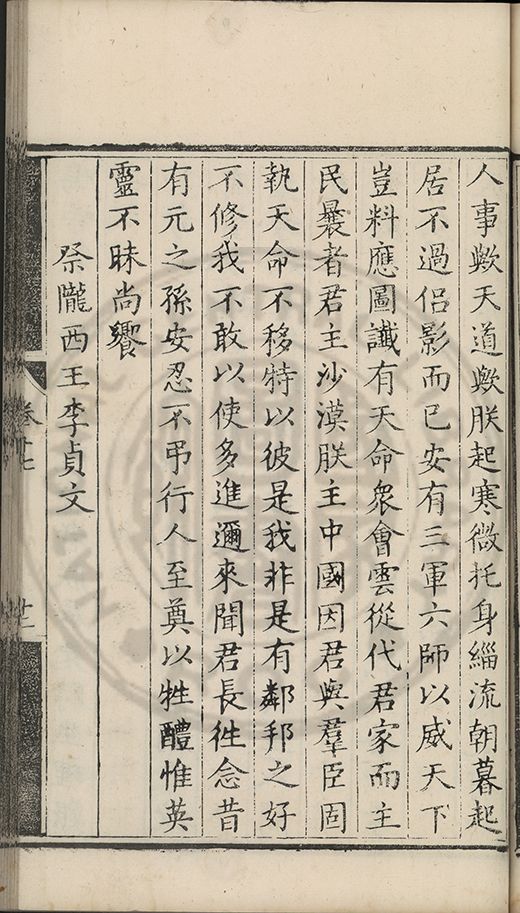 人事歟天道歟朕起寒微托身緇流朝暮起
居不過侶影而已安有三軍六師以威天下
豈料應圖讖有天命衆會雲從代君家而主
民曩者君主沙漠朕主中國因君與羣臣固
執天命不移特以彼是我非是有鄰邦之好
不修我不敢以使多進邇來聞君長徃念昔
有元之孫安忍不弔行人至奠以牲醴惟英
靈不昧尚饗
祭隴西王李貞文
卷十七
廿二